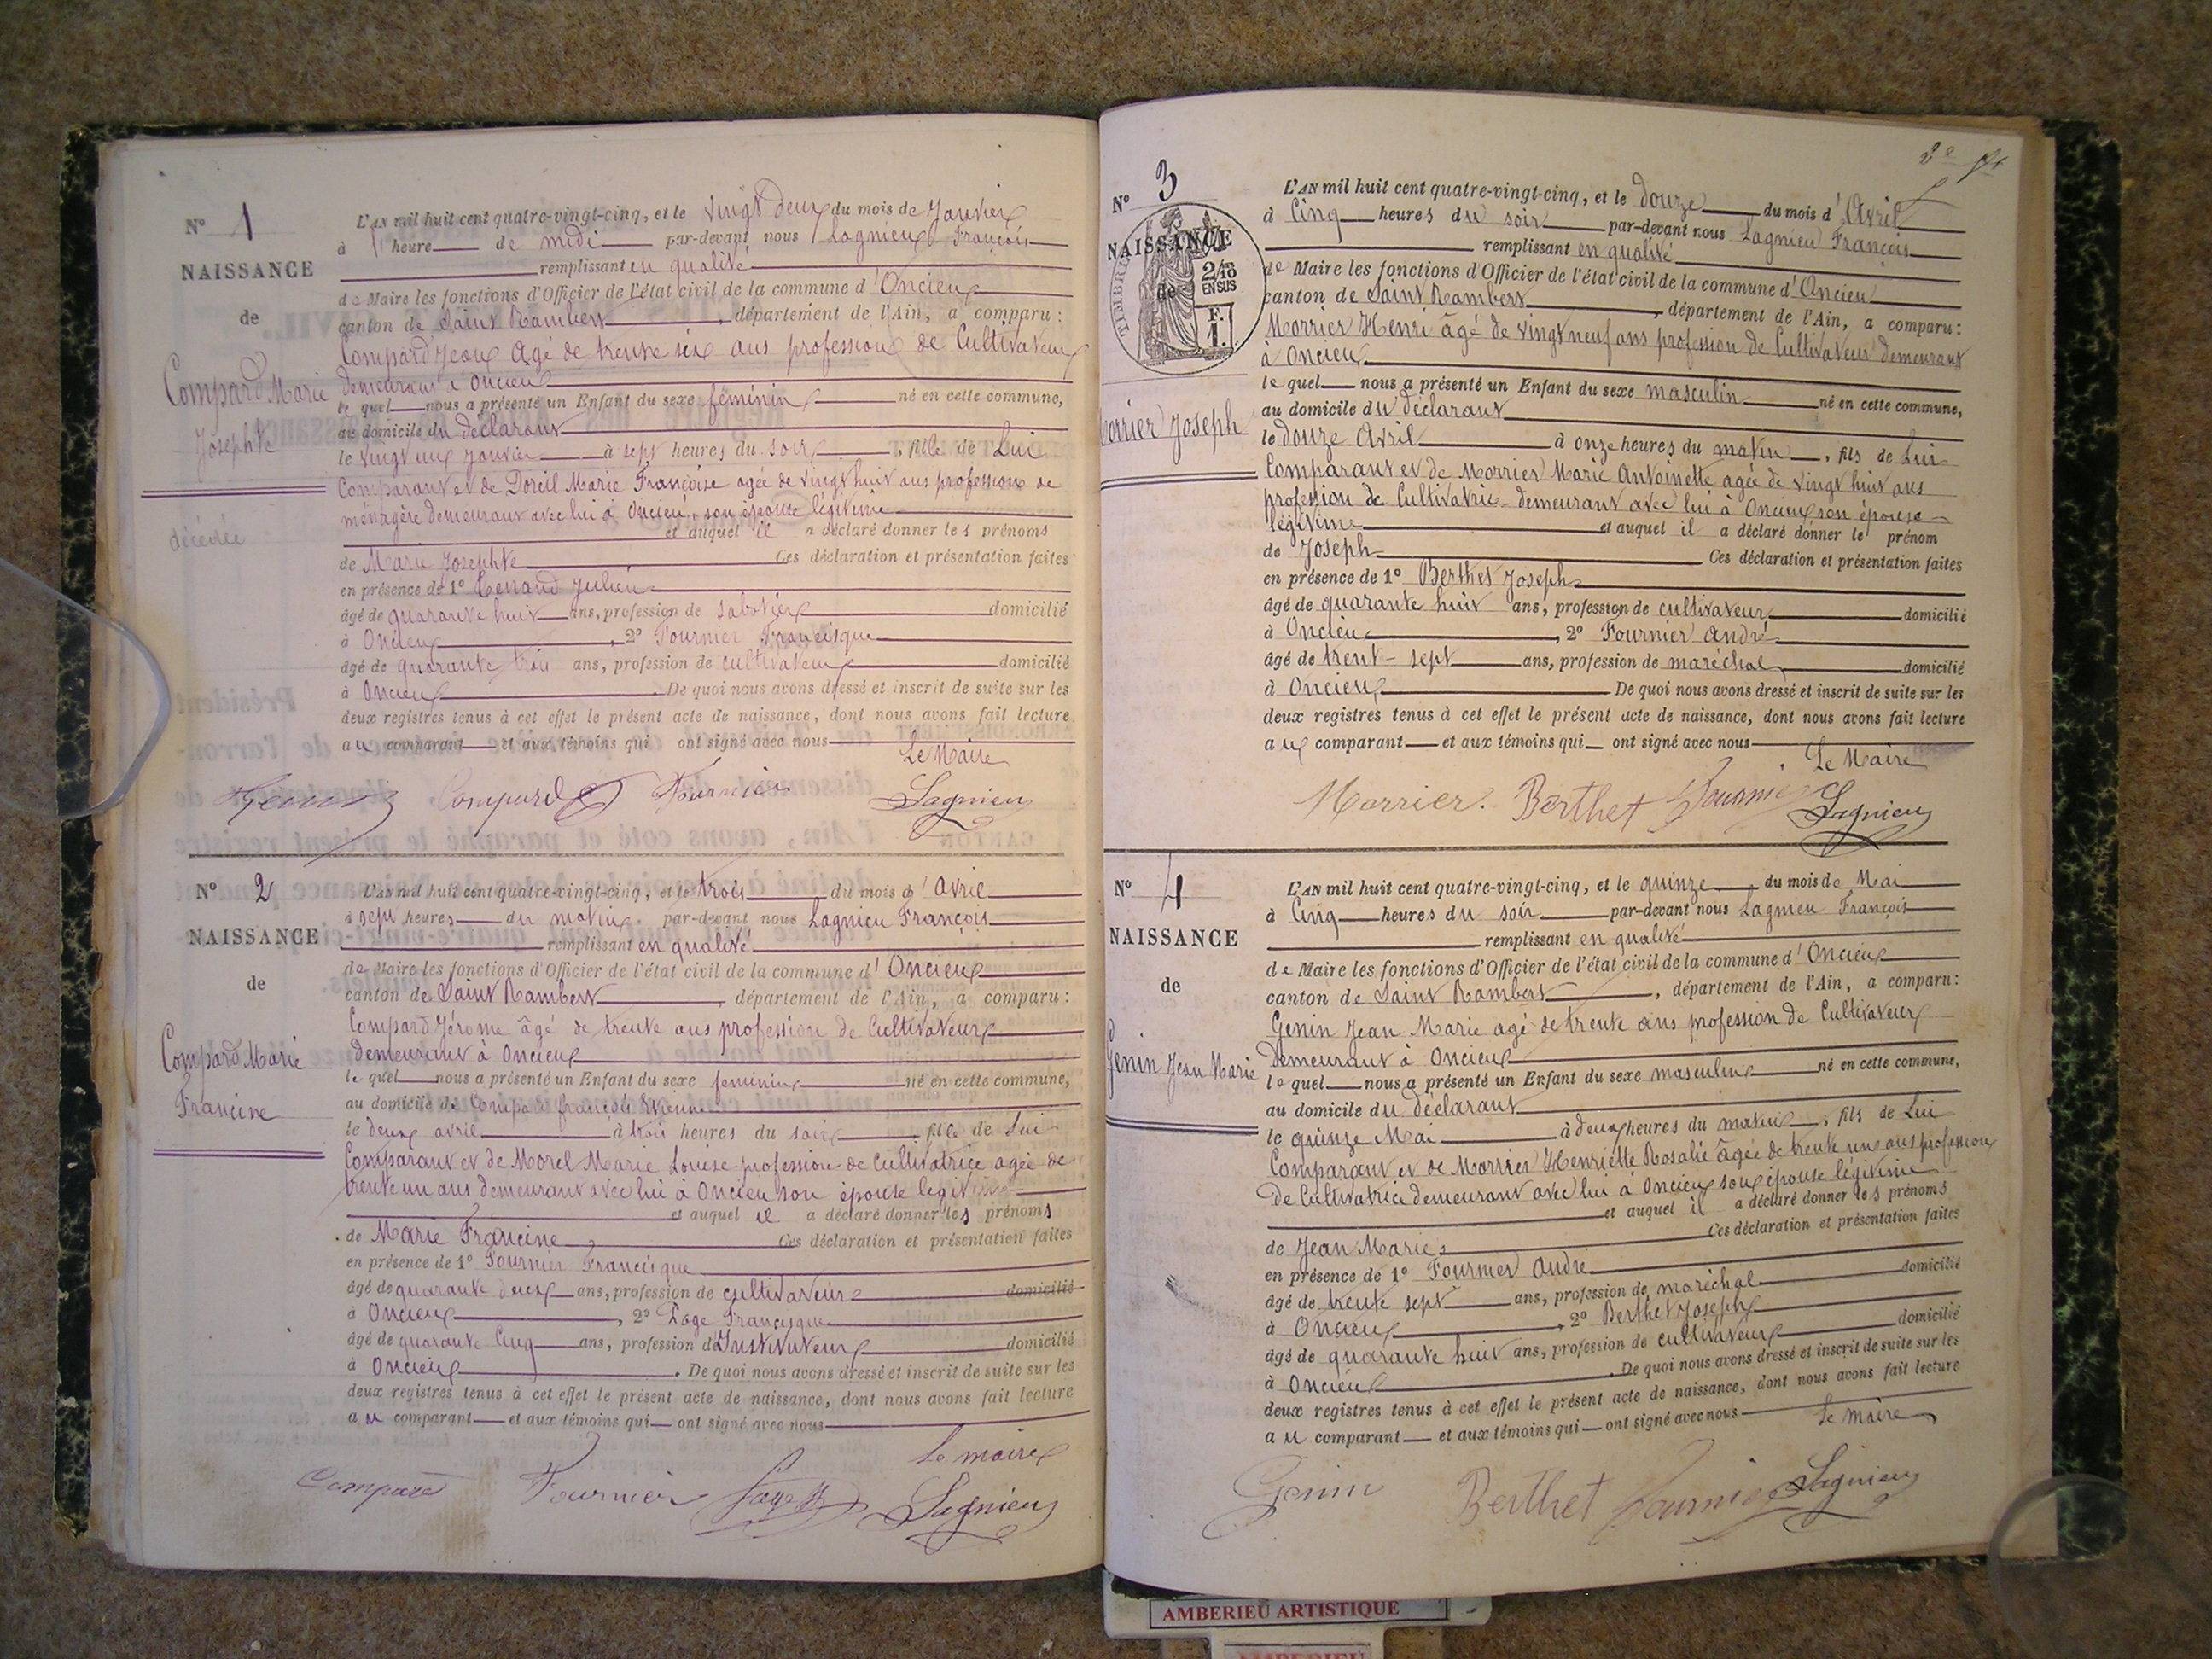 N° 1
NAISSANCE
de
Compard Marie
Josephte
décédée
L'AN mil huit cent quatre-vingt-cinq, et le vingt deux du mois de Janvier
à 1 heure de midi par-devant nous Lagnieu François
remplissant en qualité
de Maire les fonctions d'Officier de l'état civil de la commune d'Oncieu
canton de Saint Rambert, département de l'Ain, a comparu:
Compard Jean Agé de trente six ans profession de Cultivateur
demeurant à Oncieu
le quel nous a présenté un Enfant du sexe féminin né en cette commune,
au domicile du déclarant
le vingt un Janvier à sept heures du soir, fille de Lui
Comparant et de Doreil Marie Françoise agée de vingt huit ans profession de
ménagère demeurant avec lui à Oncieu, son épouse légitime
et auquel il a déclaré donner les prénoms
de Marie Josephte Ces déclaration et présentation faites
en présence de 1° Julien
âgé de quarante huit ans, profession de sabotier domicilié
à Oncieu, 2° Fournier Francisque
âgé de quarante trois ans, profession de cultivateur domicilié
à Oncieu. De quoi nous avons dressé et inscrit de suite sur les
deux registres tenus à cet effet le présent acte de naissance, dont nous avons fait lecture
au comparant et aux témoins qui ont signé avec nous
Le Maire
Compard Fournier Lagnieu
N° 2
NAISSANCE
de
Compard Marie
Francine
L'AN mil huit cent quatre-vingt-cinq, et le trois du mois d'Avril
à sept heures du matin par-devant nous Lagnieu François
remplissant en qualité
de Maire les fonctions d'Officier de l'état civil de la commune d'Oncieu
canton de Saint Rambert, département de l'Ain, a comparu:
Compard Jérome âgé de trente ans profession de Cultivateur
demeurant à Oncieu
le quel nous a présenté un Enfant du sexe feminin né en cette commune,
au domicile de Compard françois Etienne
le deux avril à trois heures du soir fille de Lui
Comparant et de Morel Marie Louise profession de Cultivatrice agée de
trente un ans demeurant avec lui à Oncieu son épouse légitime
et auquel il a déclaré donner les prénoms
de Marie Francine Ces déclaration et présentation faites
en présence de 1° Fournier Francisque
âgé de quarante deux ans, profession de cultivateur domicilié
à Oncieu, 2° Page Francisque
âgé de quarante Cinq ans, profession d'Instituteur domicilié
à Oncieu. De quoi nous avons dressé et inscrit de suite sur les
deux registres tenus à cet effet le présent acte de naissance, dont nous avons fait lecture
au comparant et aux témoins qui ont signé avec nous
Le maire
Compard Fournier Page Lagnieu
2e
N° 3
NAISSANCE
de
2/10
EN SUS
F.
1.
Morrier Joseph
L'AN mil huit cent quatre-vingt-cinq, et le douze du mois d'Avril
à Cinq heures du soir par-devant nous Lagnieu François
remplissant en qualité
de Maire les fonctions d'Officier de l'état civil de la commune d'Oncieu
canton de Saint Rambert, département de l'Ain, a comparu:
Morrier Henri âgé de vingt neuf ans profession de Cultivateur demeurant
à Oncieu
le quel nous a présenté un Enfant du sexe masculin né en cette commune,
au domicile du déclarant
le douze Avril à onze heures du matin, fils de Lui
Comparant et de Morrier Marie Antoinette agée de vingt huit ans
profession de Cultivatrice demeurant avec lui à Oncieu son épouse
légitime et auquel il a déclaré donner le prénom
de Joseph Ces déclaration et présentation faites
en présence de 1° Berthet Joseph
âgé de quarante huit ans, profession de cultivateur domicilié
à Oncieu, 2° Fournier André
âgé de trent-sept ans, profession de maréchal domicilié
à Oncieu De quoi nous avons dressé et inscrit de suite sur les
deux registres tenus à cet effet le présent acte de naissance, dont nous avons fait lecture
aux comparant et aux témoins qui ont signé avec nous
Le Maire
Morrier. Berthet Fournier Lagnieu
N° 4
NAISSANCE
de
Genin Jean Marie
L'AN mil huit cent quatre-vingt-cinq, et le quinze du mois de Mai
à Cinq heures du soir par-devant nous Lagnieu François
remplissant en qualité
de Maire les fonctions d'Officier de l'état civil de la commune d'Oncieu
canton de Saint Rambert, département de l'Ain, a comparu:
Genin Jean Marie agé de trente ans profession de Cultivateur
demeurant à Oncieu
le quel nous a présenté un Enfant du sexe masculin né en cette commune,
au domicile du déclarant
le quinze Mai à deux heures du matin, fils de Lui
Comparant et de Morrier Henriette Rosalie âgée de trente un ans profession
de Cultivatrice demeurant avec lui à Oncieu son épouse légitime
et auquel il a déclaré donner les prénoms
de Jean Marie Ces déclaration et présentation faites
en présence de 1° Fournier André
âgé de trente sept ans, profession de maréchal domicilié
à Oncieu, 2° Berthet Joseph
âgé de quarante huit ans, profession de cultivateur domicilié
à Oncieu. De quoi nous avons dressé et inscrit de suite sur les
deux registres tenus à cet effet le présent acte de naissance, dont nous avons fait lecture
au comparant et aux témoins qui ont signé avec nous
Le maire
Genin Berthet Fournier Lagnieu
AMBERIEU ARTISTIQUE
AMBERIEU